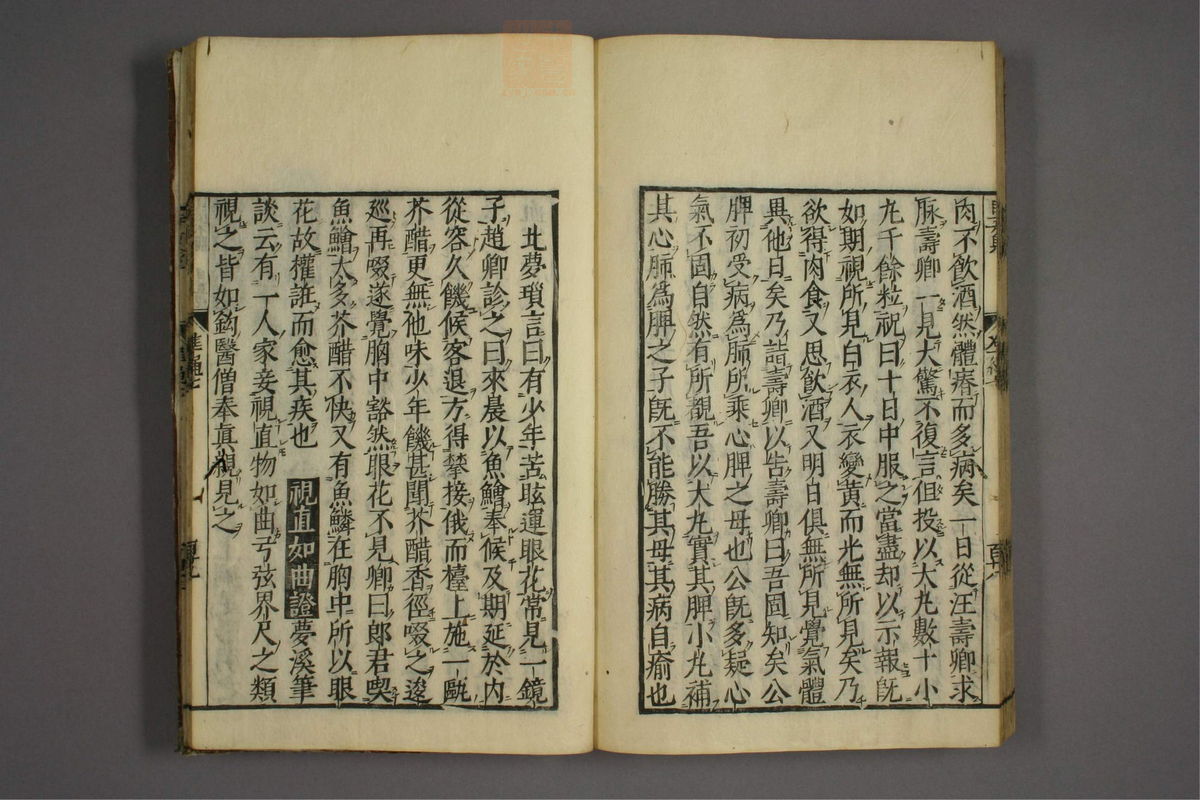 肉不飲酒然體瘠而多病矣一日從汪壽卿求
脉壽卿一見大驚不復言但投以大丸數十小
丸千餘粒祝曰十日中服之當盡却以示報旣
如期視所見白衣人衣變黃而光無所見矣乃
欲得肉食又思飲酒又明日俱無所見覺氣體
異他日矣乃詣壽卿以告壽卿曰吾固知矣公
脾初受病爲肺所乘心脾之母也公旣多疑心
氣不固自然有所覩吾以大丸實其脾小丸補
其心肺爲脾之子旣不能勝其母其病自瘉也
北夢瑣言曰有少年苦眩運眼花常見一鏡
子趙卿診之曰來晨以魚鱠奉候及期延於内
從容久饑候客退方得攀接俄而檯上施一甌
芥醋更無他味少年饑甚聞芥醋香徑啜之逡
廵再啜遂覺胸中豁然眼花不見卿曰郎君喫
魚鱠太多芥醋不快又有魚鱗在胸中所以眼
花故權誑而愈其疾也 視直如曲證 夢溪筆
談云有一人家妾視直物如曲弓弦界尺之類
視之皆如鈎醫僧奉眞親見之